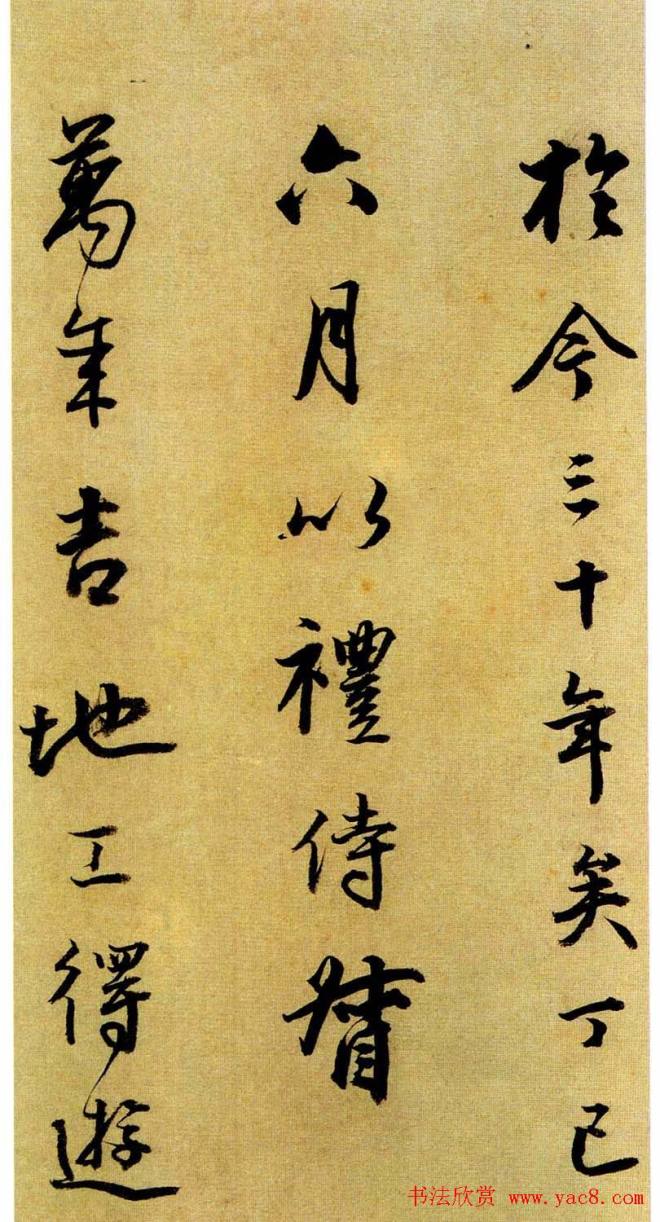 於今三十年矣丁巳
六月以禮侍督
萬年吉地工得遊
书法欣赏 www.yac8.com